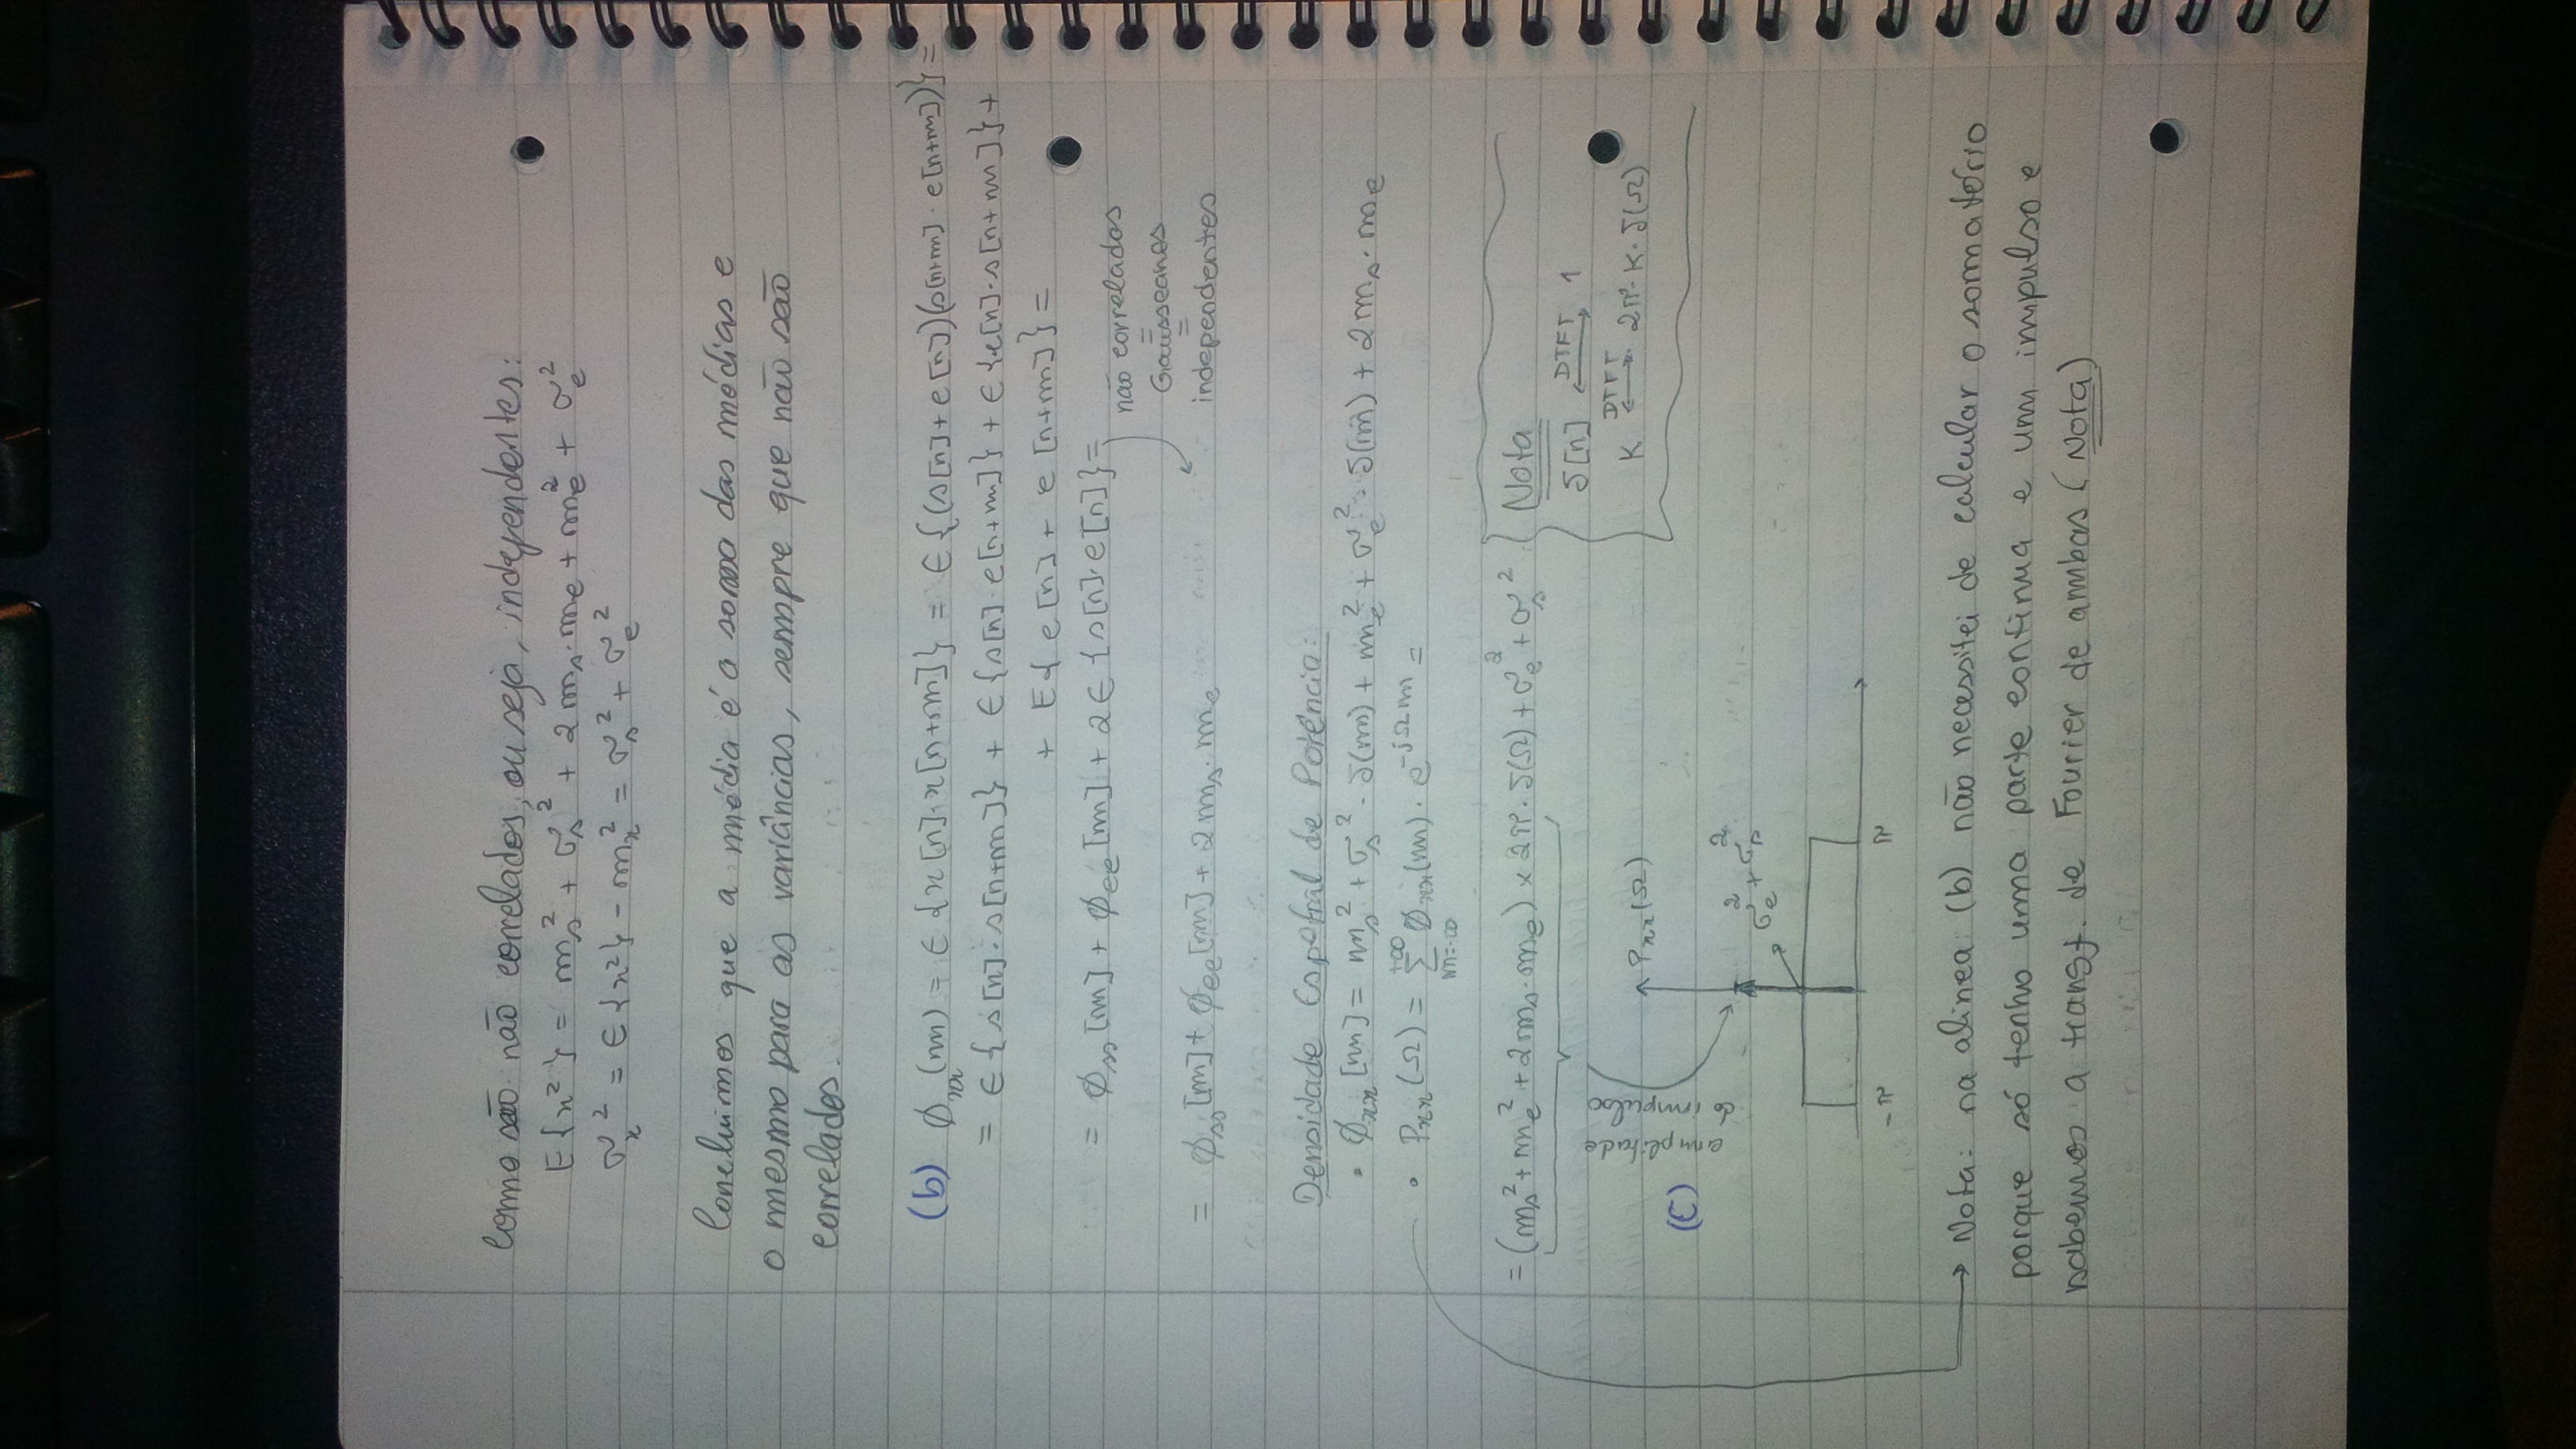 Como são não correlados, ou seja, independentes:
E{x²} = mₛ² + σₛ² + 2mₛ·mₑ + mₑ² + σₑ²
σₓ² = E{x²} - mₓ² = σₛ² + σₑ²
Concluimos que a média é a soma das médias e
o mesmo para as variâncias, sempre que não são
correlados.
(b) ϕₓₓ(m) = E{x[n]·x[n+m]} = E{(s[n]+e[n])(s[n+m]·e[n+m])} =
= E{s[n]·s[n+m]} + E{s[n]·e[n+m]} + E{e[n]·s[n+m]} +
+ E{e[n] + e[n+m]} =
= ϕₛₛ[m] + ϕₑₑ[m] + 2E{s[n]·e[n]} =
não correlados
=
Gausseanos
=
independentes
= ϕₛₛ[m] + ϕₑₑ[m] + 2mₛ·mₑ
Densidade Espetral de Potência:
• ϕₓₓ[m] = mₛ² + σₛ²·δ(m) + mₑ² + σₑ²·δ(m) + 2mₛ·mₑ
• Pₓₓ(Ω) = Σ ϕₓₓ(m)·e^-jΩm =
+∞
m=-∞
= (mₛ² + mₑ² + 2mₛ·mₑ) × 2π·δ(Ω) + σₑ² + σₛ²
Nota
δ[n] ⟷ 1
DTFT
K ⟷ 2π·K·δ(Ω)
DTFT
amplitude
do impulso
(C)
Pₓₓ(Ω)
σₑ² + σₛ²
-π
π
→ Nota: na alinea (b) não necessitei de calcular o somatório
porque só tenho uma parte continua e um impulso e
sabemos a transf. de Fourier de ambas (Nota)